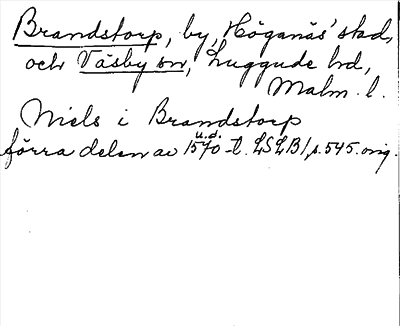 Brandstorp, by, Höganäs' stad,
och Väsby sn, Luggude hd,
Malm. l.
Niels i Brandstorp
u.d.
förra delen av 1570-t. LSLB1, s. 545. orig.